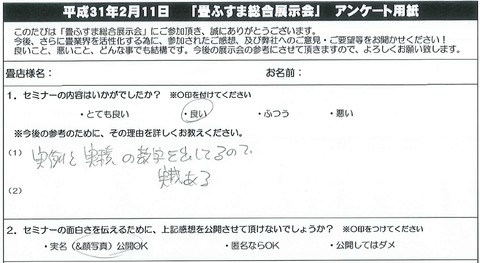 平成31年2月11日 「畳ふすま総合展示会」 アンケート用紙
このたびは「畳ふすま総合展示会」にご参加頂き、誠にありがとうございます。
今後、さらに畳業界を活性化する為に、参加されたご感想、及び弊社へのご意見・ご要望等をお聞かせください！
良いこと、悪いこと、どんな事でも結構です。今後の展示会の参考にさせて頂きますので、よろしくお願い致します。
畳店様名： お名前：
1．セミナーの内容はいかがでしたか？ ※○印を付けてください
・とても良い ・良い ・ふつう ・悪い
※今後の参考のために、その理由を詳しくお教えください。
(1) 実例と実績の数字を出してるので
実がある
(2)
2．セミナーの面白さを伝えるために、上記感想を公開させて頂けないでしょうか？ ※○印をつけてください
・実名（&顔写真）公開OK ・匿名ならOK ・公開してはダメ